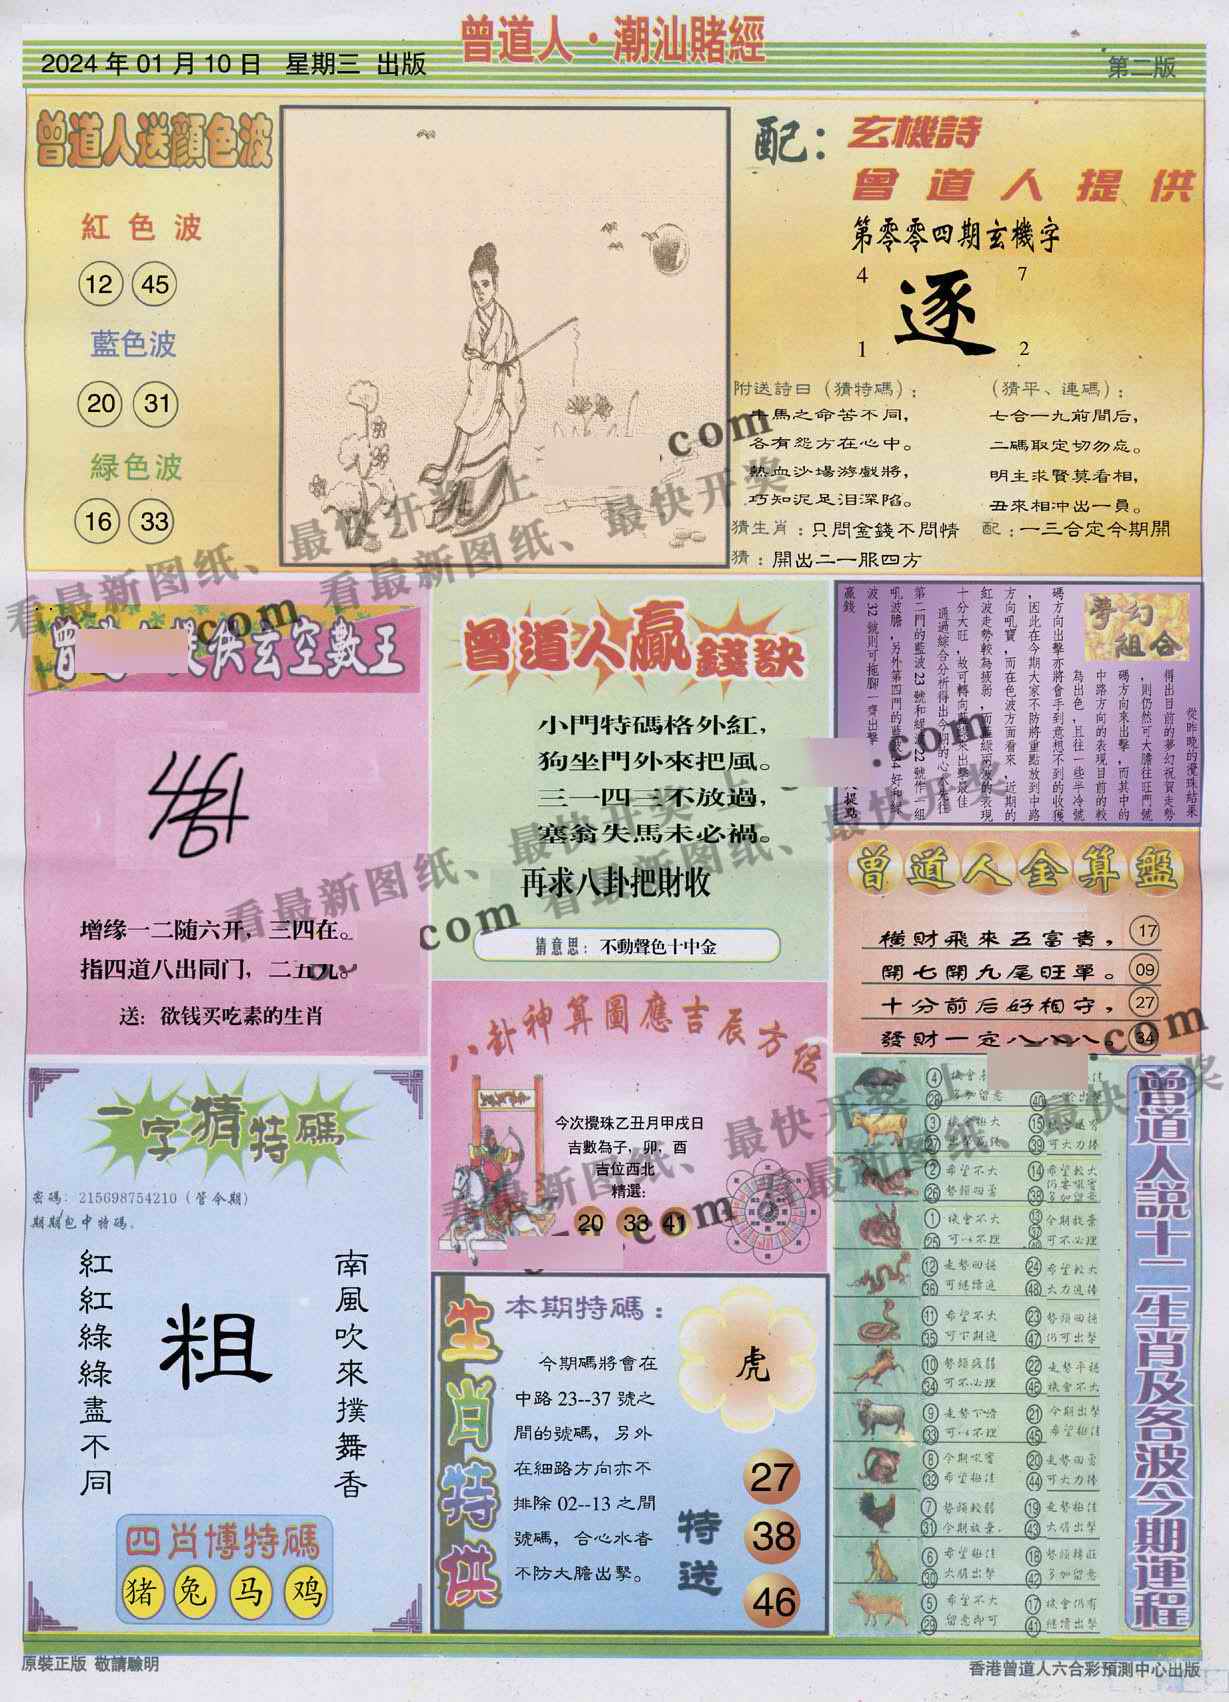 曾道人·潮汕賭經
2024年01月10日 星期三 出版
第二版
曾道人送顔色波
紅色波
12 45
藍色波
20 31
緑色波
16 33
配：玄機詩
曾道人提供
第零零四期玄機字
4 7
逐
1 2
附送詩曰（猜特碼）：
牛馬之命苦不同，
各有怨方在心中。
熱血沙場游戲將，
巧知泥足泪深陷。
猜生肖：只問金錢不問情
猜：開出二一服四方
（猜平、連碼）：
七合一九前間后，
二碼取定切勿忘。
明主求賢莫看相，
丑來相冲出一員。
配：一三合定今期開
玄空數王
增缘一二随六开，三四在。
指四道八出同门，二五九。
送：欲钱买吃素的生肖
曾道人贏錢訣
小門特碼格外紅，
狗坐門外來把風。
三一四三不放過，
塞翁失馬未必禍。
再求八卦把財收
猜意思：不動聲色十中金
夢幻組合
從昨晚的攪珠結果
得出目前的夢幻祝賀走勢
，則仍然可大膽往旺門號
碼方向來出擊，而其中的
中路方向的表現目前的較
為出色，且往一些半冷號
碼方向出擊亦將會手到意想不到的收獲
，因此在今期大家不防將重點放到中路
方向吼寶，而在色波方面看來，近期的
紅波走勢較為疲弱，而藍綠兩波的表現
十分大旺，故可轉向藍綠來出擊最佳
通過綜合分析得出今期的心水先往
第二門的藍波23號和緑波22號作一組
吼波膽，另外第四門的藍波
波32號則可拖腳一齊出擊
贏錢
曾道人金算盤
橫財飛來五富貴， 17
開七開九尾旺單。 09
十分前后好相守， 27
發財一定八八八。 34
八卦神算圖應吉辰方位
今次攪珠乙丑月甲戌日
吉數為子，卯，酉
吉位西北
精選：
20 33 41
一字猜特碼
密碼：215698754210（管今期）
期期包中特碼。
南風吹來撲舞香
粗
紅紅綠綠盡不同
四肖博特碼
猪 兔 马 鸡
生肖特供
本期特碼：
今期碼將會在
中路23--37號之
間的號碼，另外
在細路方向亦不
排除02--13之間
號碼，合心水者
不防大膽出擊。
虎
特送
27
38
46
曾道人説十二生肖及各波今期運程
③ 機會極大
② 希望不大 ⑭ 希望較大
㉖ 勢頭回勇
① 機會不大 ⑬ 今期放棄
㉕ 可以不理 可不必理
⑫ 走勢回穩 ㉔ 希望較大
㊱ 可繼續追 ㊽ 大力追捧
⑪ 希望不大 ㉓ 勢頭回穩
㉟ 可下期追 ㊼ 仍可出擊
⑩ 勢頭疲弱 ㉒ 走勢平穩
㉞ 可不必理 ㊻ 機會不大
⑨ 走勢不暗 ㉑ 今期出擊
㉝ 可以不理 ㊺ 希望極佳
⑧ 今期吼寶 ⑳ 走勢回勇
㉜ 希望極佳 ㊹ 可大力捧
⑦ 勢頭較弱 ⑲ 走勢極佳
㉛ 今期放棄， ㊸ 大膽出擊
⑥ 希望極佳 ⑱ 勢頭轉旺
㉚ 大膽出擊 ㊷ 多加留意
⑤ 希望不大 ⑰ 機會仍有
㉙ 留意即可 ㊶ 繼續出擊
看最新图纸、最快开奖上
.com
原裝正版 敬請驗明
香港曾道人六合彩預測中心出版